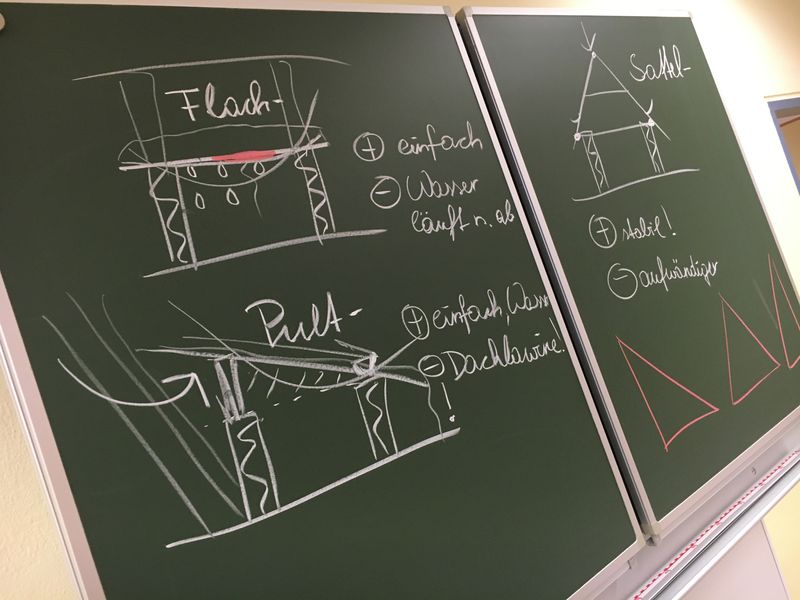 Flach-
⊕ einfach
⊖ Wasser
läuft n. ab
Pult-
⊕ einfach, Wasser
⊖ Dachlawine!
!
Sattel-
⊕ stabil!
⊖ aufwändiger